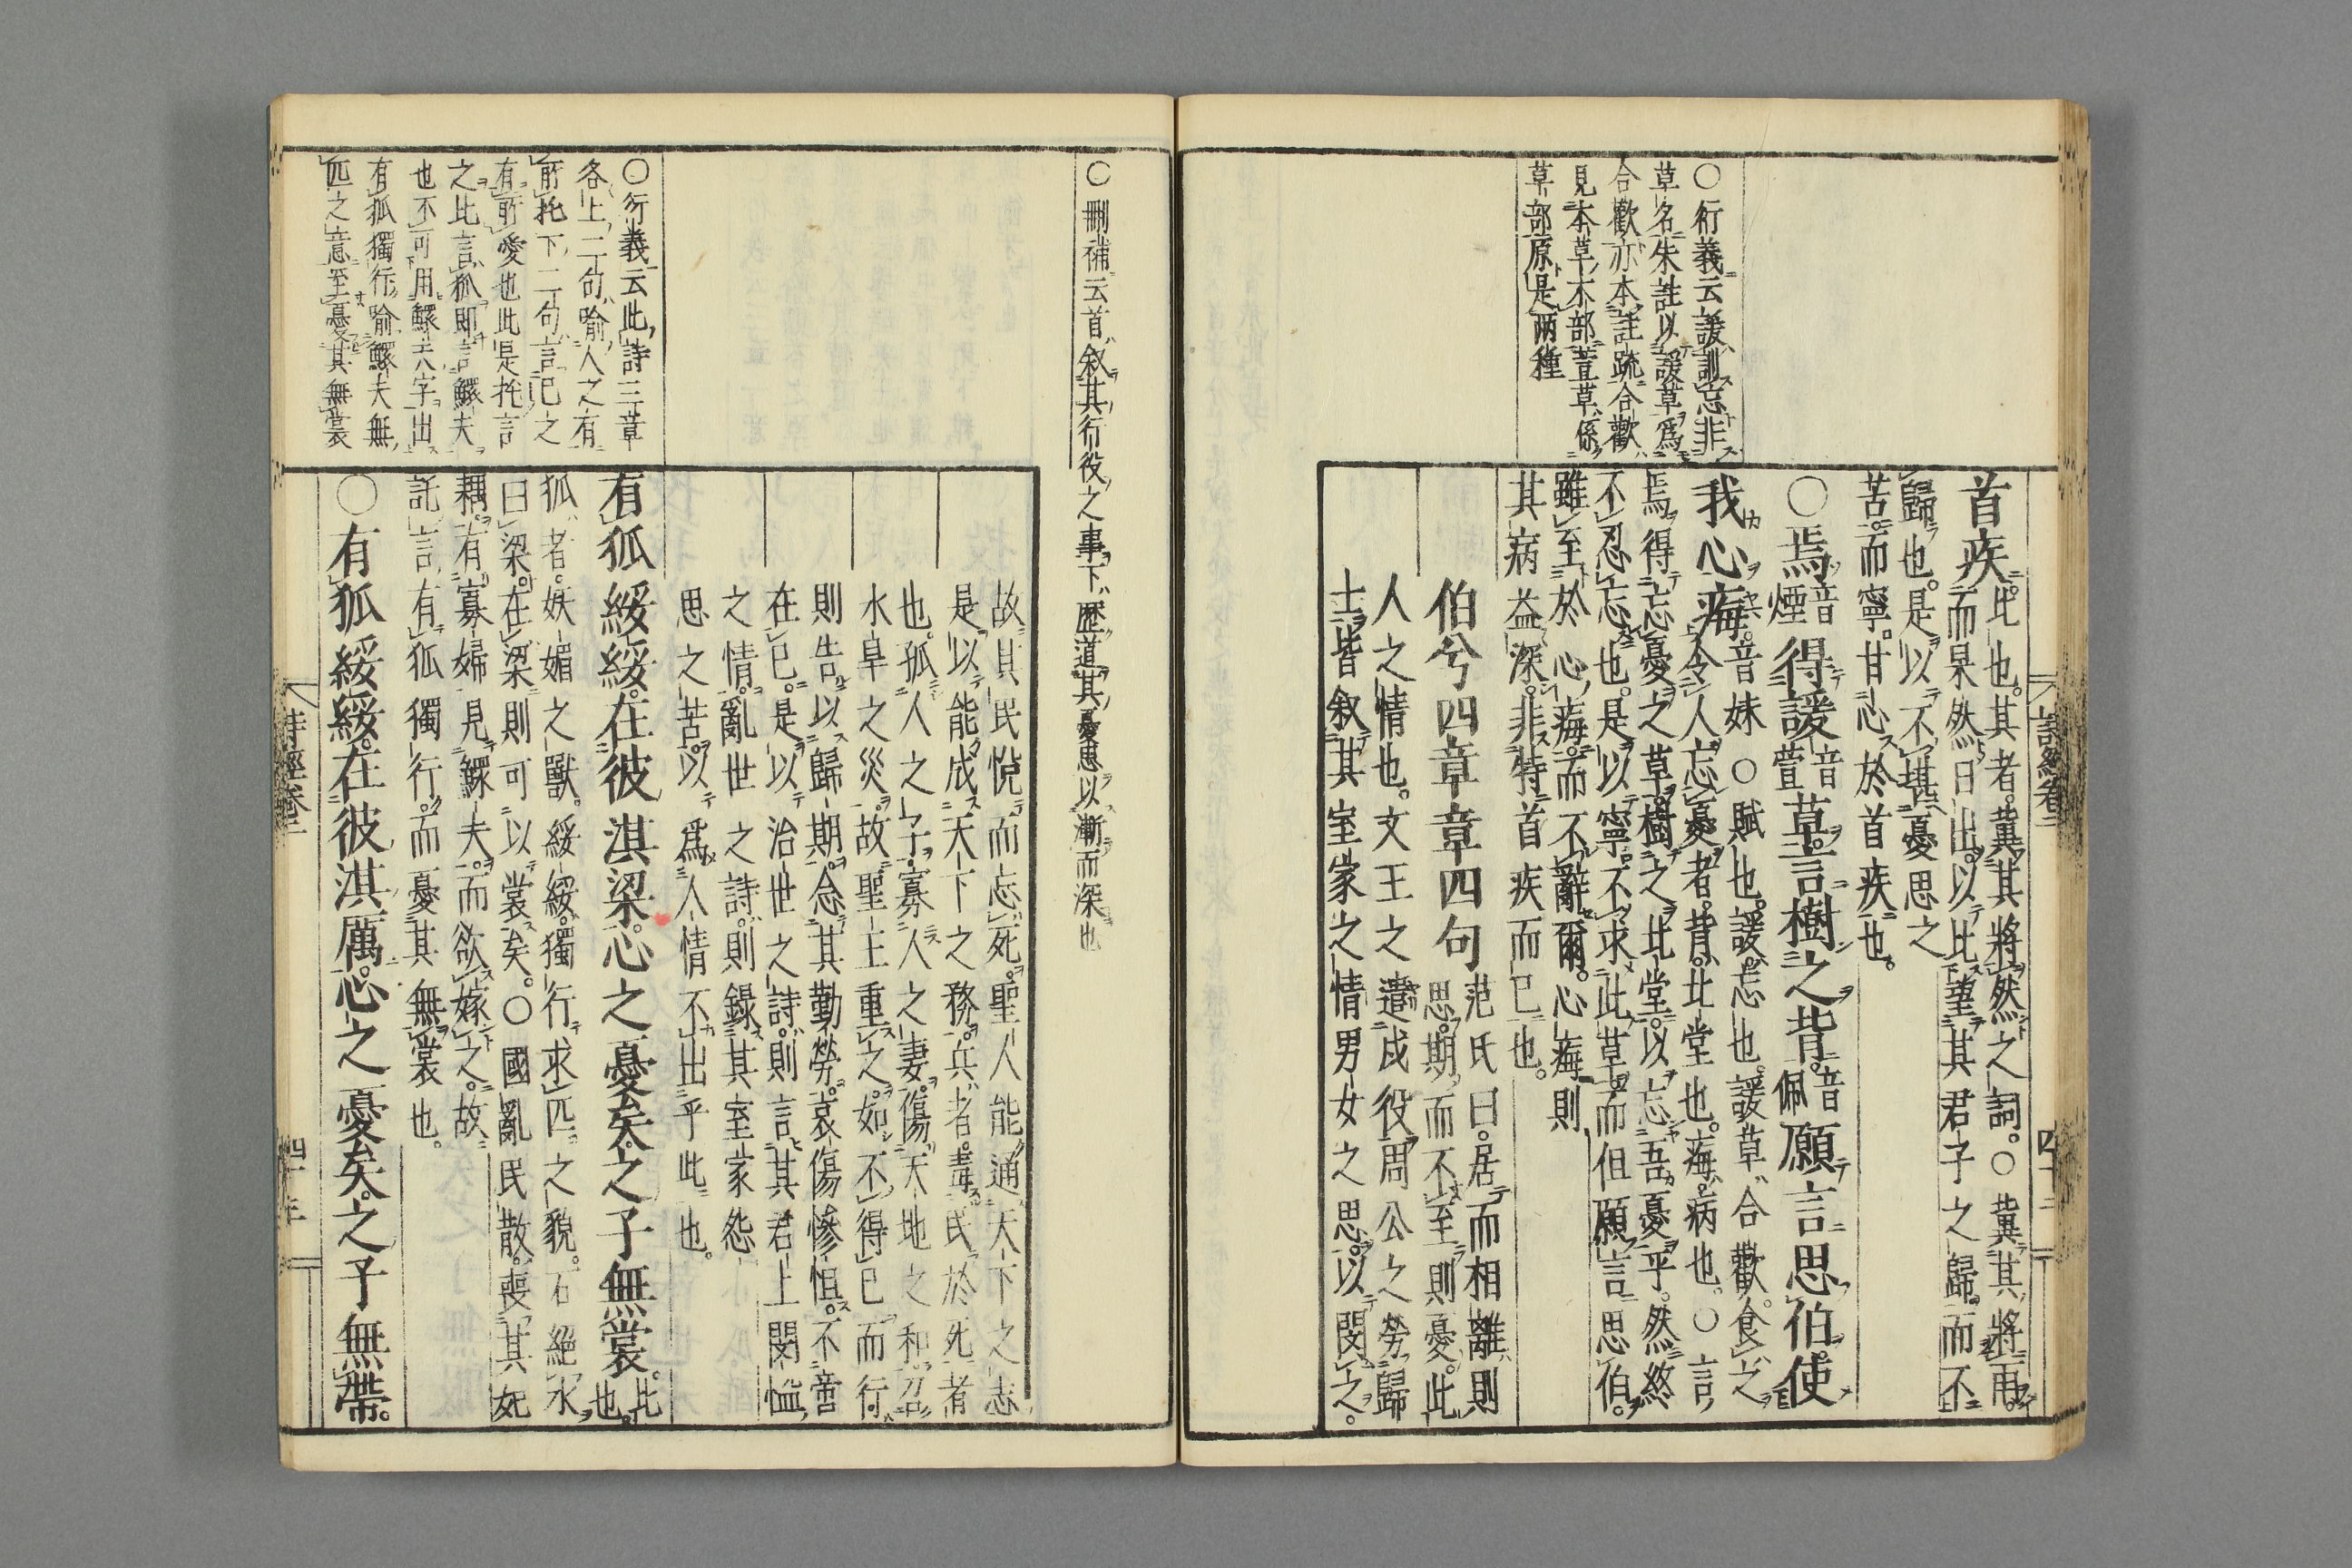 ○衍義云諼訓忘非
草名朱註以諼草爲
合歡亦本註疏合歡
見本草木部萱草係
草部原是兩種
首疾。比也。其者。冀其將然之詞。○冀其將雨。
而杲然日出。以比望其君子之歸而不
歸也。是以不堪憂思之
苦。而寧甘心於首疾也。
○焉音煙得諼音萱草。言樹之背。音佩願言思伯。使
我心痗。音妹○賦也。諼。忘也。諼草合歡。食之
令人忘憂者。背。北堂也。痗。病也。○言
焉得忘憂之草。樹之北堂。以忘吾憂乎。然終
不忍忘也。是以寧不求此草。而但願言思伯。
雖至於心痗。而不辭爾。心痗則
其病益深。非特首疾而已也。
伯兮四章章四句
范氏曰。居而相離則
思。期而不至則憂。此
人之情也。文王之遣戍役。周公之勞歸
士。皆敘其室家之情男女之思。以閔之。
詩經卷二
四十二
○刪補云首敘其行役之事下歷道其憂思以漸而深也
○衍義云此詩三章
各上二句喻人之有
所托下二句言己之
有所愛也此是托言
之比言狐即言鰥夫
也不可用鰥夫字出
有狐獨行喻鰥夫無
匹之意至憂其無裳
故其民悅而忘死。聖人能通天下之志
是以能成天下之務。兵者。毒民於死者
也。孤人之子。寡人之妻。傷天地之和。召
水旱之災。故聖王重之。如不得已而行。
則告以歸期。念其勤勞。哀傷慘怛。不啻
在己。是以治世之詩。則言其君上閔恤
之情。亂世之詩。則錄其室家怨
思之苦。以爲人情不出乎此也。
有狐綏綏。在彼淇梁。心之憂矣。之子無裳。比也。
狐者。妖媚之獸。綏綏。獨行求匹之貌。石絕水
曰梁。在梁則可以裳矣。○國亂民散。喪其妃
耦。有寡婦見鰥夫。而欲嫁之。故
託言有狐獨行。而憂其無裳也。
○有狐綏綏。在彼淇厲。心之憂矣。之子無帶。
詩經卷二
四十三